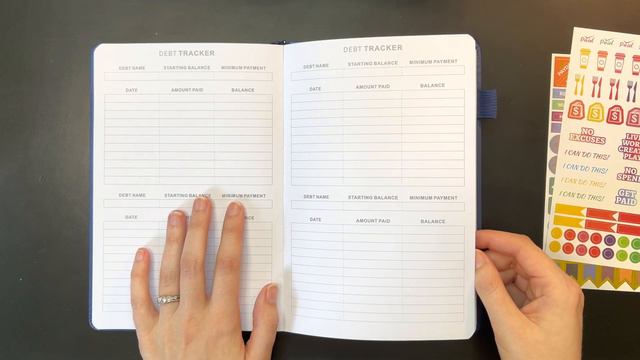 DEBT TRACKER
DEBT NAME STARTING BALANCE MINIMUM PAYMENT
DATE AMOUNT PAID BALANCE
DEBT NAME STARTING BALANCE MINIMUM PAYMENT
DATE
DEBT TRACKER
DEBT NAME STARTING BALANCE MINIMUM PAYMENT
DATE AMOUNT PAID BALANCE
DEBT NAME STARTING BALANCE MINIMUM PAYMENT
DATE AMOUNT PAID BALANCE
NO EXCUSES
I CAN DO THIS!
I CAN DO THIS!
I CAN DO THIS!
I CAN DO THIS!
NO
GET
PAID